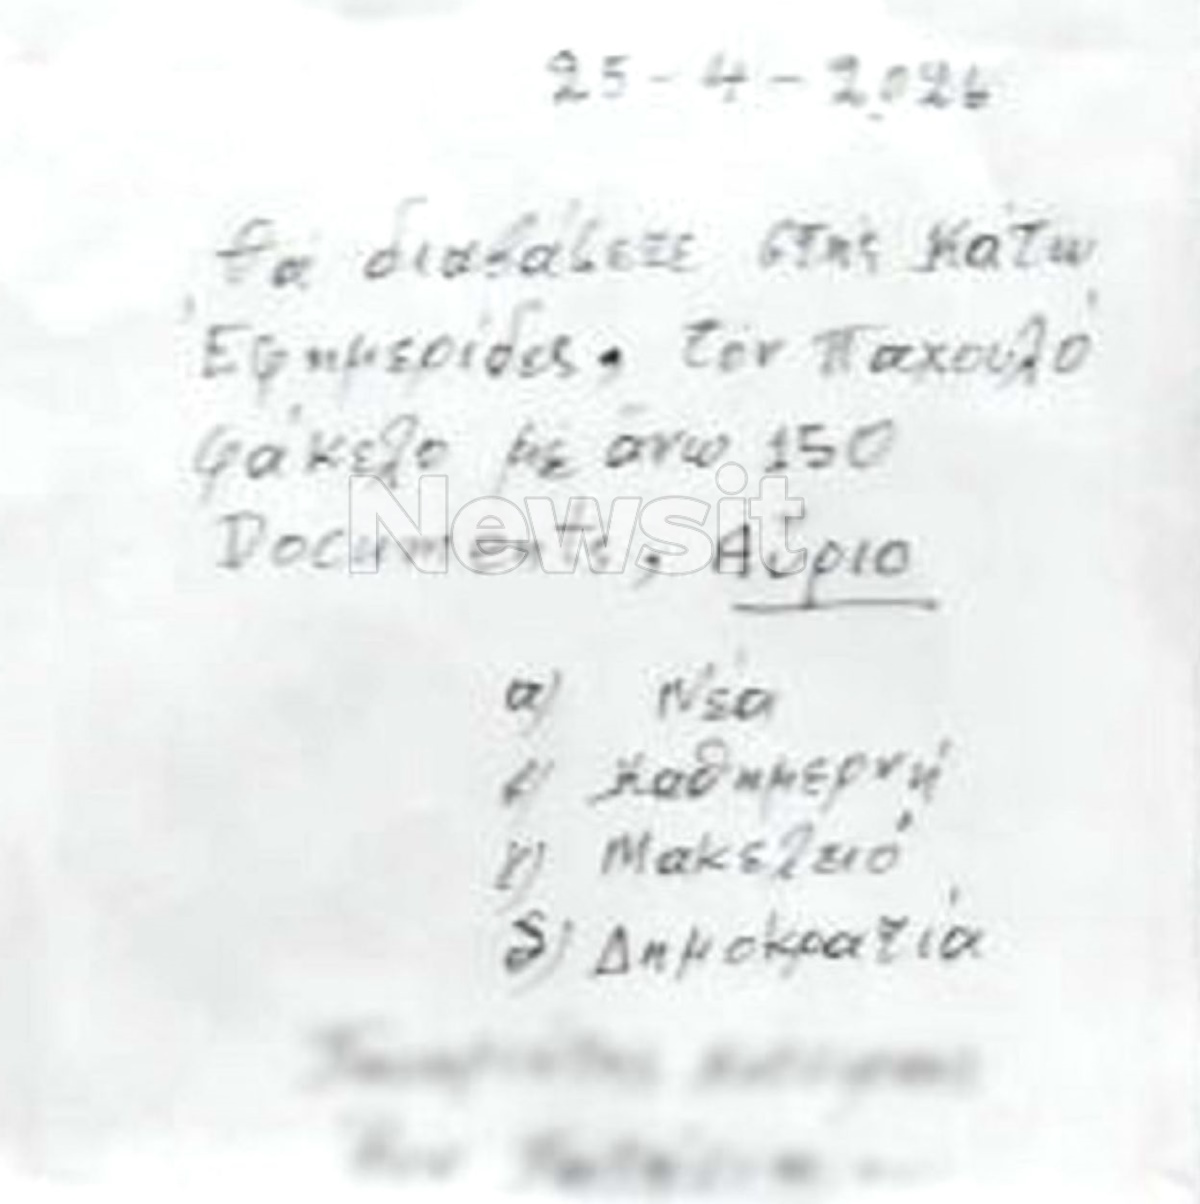 25-4-2026
Θα διαβάσετε στης κάτω
Εφημερίδες. τον παχουλό
φάκελο με άνω 150
Documents, Αύριο
Newsit
α) Νέα
β) καθημερνή
γ) Μακελειό
δ) Δημοκρατία